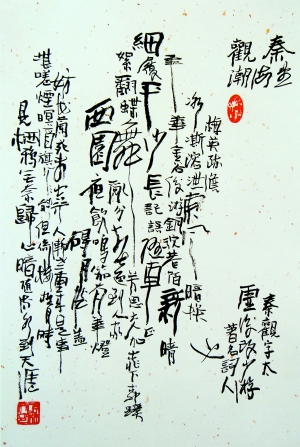 秦觀
望海潮
梅英疏淡
冰澌溶泄東風暗換
年華金谷俊游銅駝巷陌新晴
細履平沙長記誤隨車正
絮翻蝶舞芳思交加柳下桃蹊
亂分春色到人家
西園夜飲鳴笳有華燈
碍月飛蓋
妨花蘭苑未空行人漸老重來是事
堪嗟煙暝酒旗斜但倚樓極目時
見栖鴉無奈歸心暗隨流水到天涯
秦觀字太
虛後改少游
著名詞人